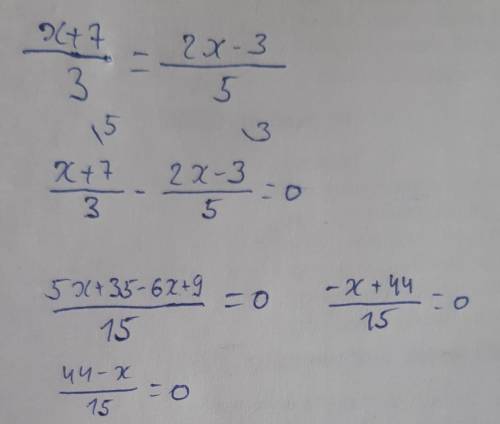 x+7/3 = 2x-3/5
\5 \3
x+7/3 - 2x-3/5 = 0
5x+35-6x+9/15 = 0 -x+44/15 = 0
44-x/15 = 0